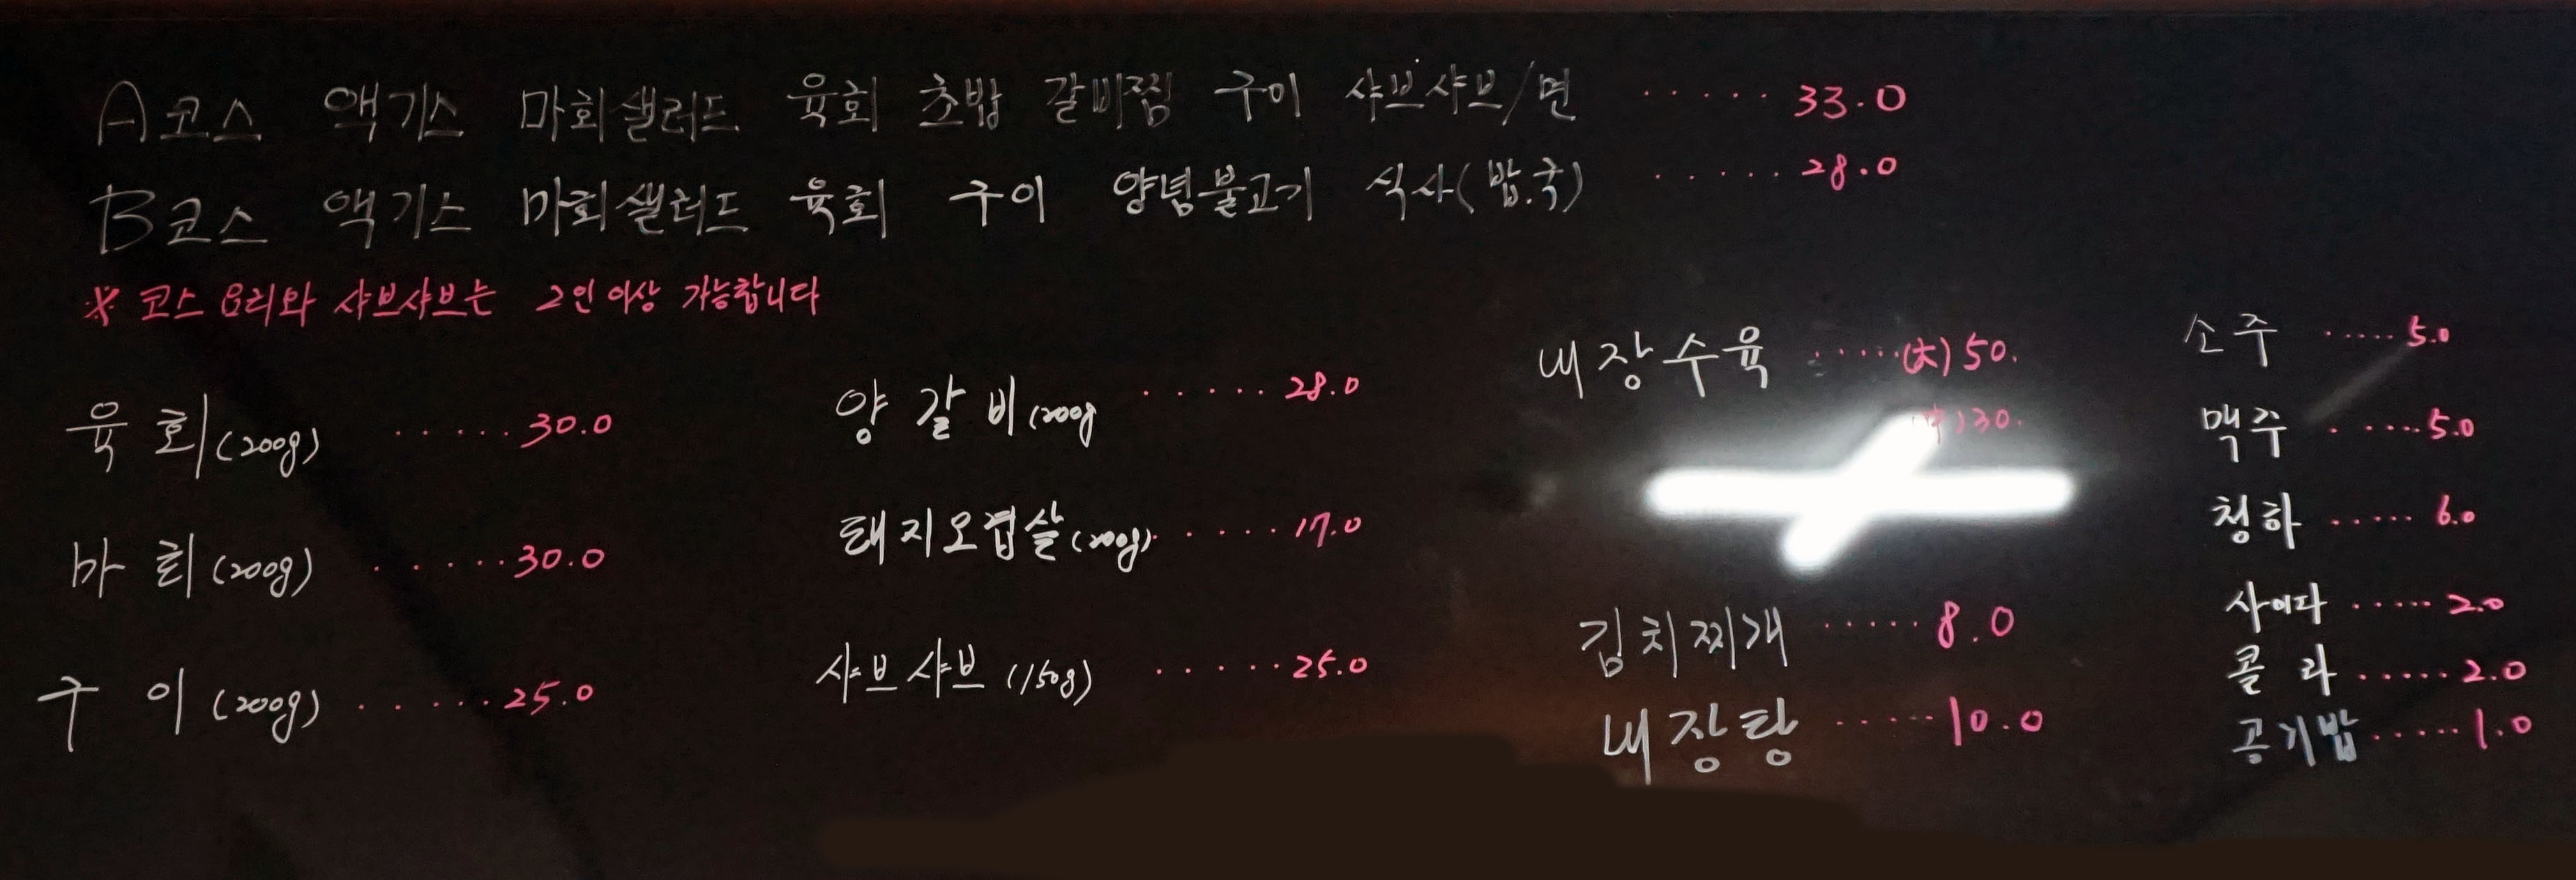 A코스 액기스 마회샐러드 육회 초밥 갈비찜 구이 샤브샤브/면 ····· 33.0
B코스 액기스 마회샐러드 육회 구이 양념불고기 식사(밥.국) ····· 28.0
※ 코스 요리와 샤브샤브는 2인 이상 가능합니다
육회(200g) ····· 30.0
마회(200g) ····· 30.0
구이(200g) ····· 25.0
양갈비(200g ····· 28.0
돼지오겹살(200g) ····· 17.0
샤브샤브(150g) ····· 25.0
내장수육 ·····(大) 50.
30.
김치찌개 ····· 8.0
내장탕 ····· 10.0
소주 ····· 5.0
맥주 ····· 5.0
청하 ····· 6.0
사이다 ····· 2.0
콜라 ····· 2.0
공기밥 ····· 1.0